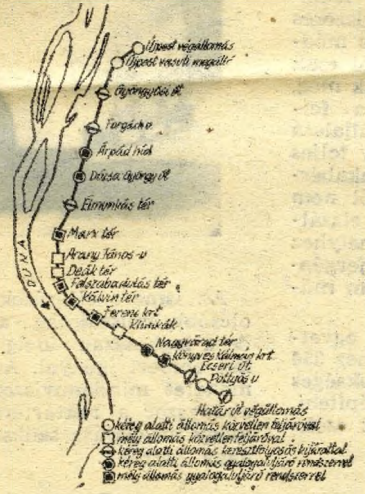 Újpest végállomás
Újpest vasúti megálló
Gyöngyösi út
Forgách u.
Árpád híd
Dózsa György út
Élmunkás tér
Marx tér
Arany János-u
Deák tér
Felszabadulás tér
Kálvin tér
Ferenc krt
Klinikák
Nagyvárad tér
Könyves Kálmán krt
Ecseri út
Pöttyös u
Határ út végállomás
DUNA
kéreg alatti állomás közvetlen feljáróval
mély állomás közvetlen feljáróval
kéreg alatti állomás keresztfolyosós kijárattal
kéreg alatti állomás gyalogaluljáró rendszerrel
mély állomás gyalogaluljáró rendszerrel